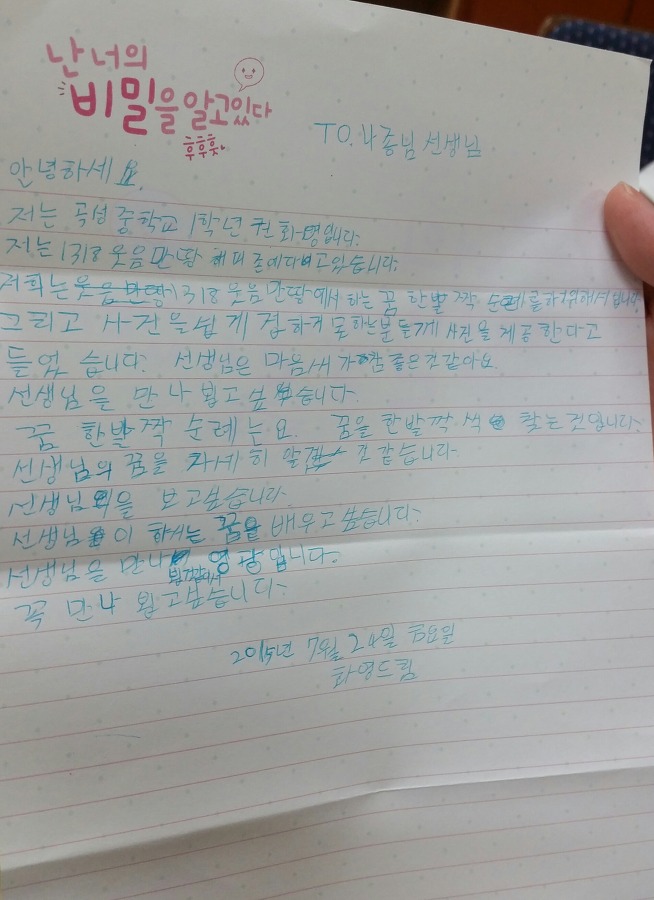 난 너의
비밀을 알고있다
후후훗
TO. 나종님 선생님
안녕하세요.
저는 곡성중학교 1학년 권화영입니다.
저는 1318 웃음만땅 해피존에 다니고있습니다.
저희는 1318 웃음만땅에서 하는 꿈 한발짝 순례를하기위해서 입니다.
그리고 사진을 쉽게 접하지 못하는분들께 사진을 제공한다고
들었습니다. 선생님은 마음씨가 참 좋은것같아요.
선생님을 만나 뵙고 싶습니다.
꿈 한발짝 순례는요. 꿈을 한발짝 씩 찾는것입니다.
선생님의 꿈을 자세히 알 것 같습니다.
선생님을 보고싶습니다.
선생님이 하시는 꿈을 배우고싶습니다.
선생님을 만나 영광입니다.
꼭 만나 뵙고싶습니다.
2015년 7월 24일 금요일
화영드림